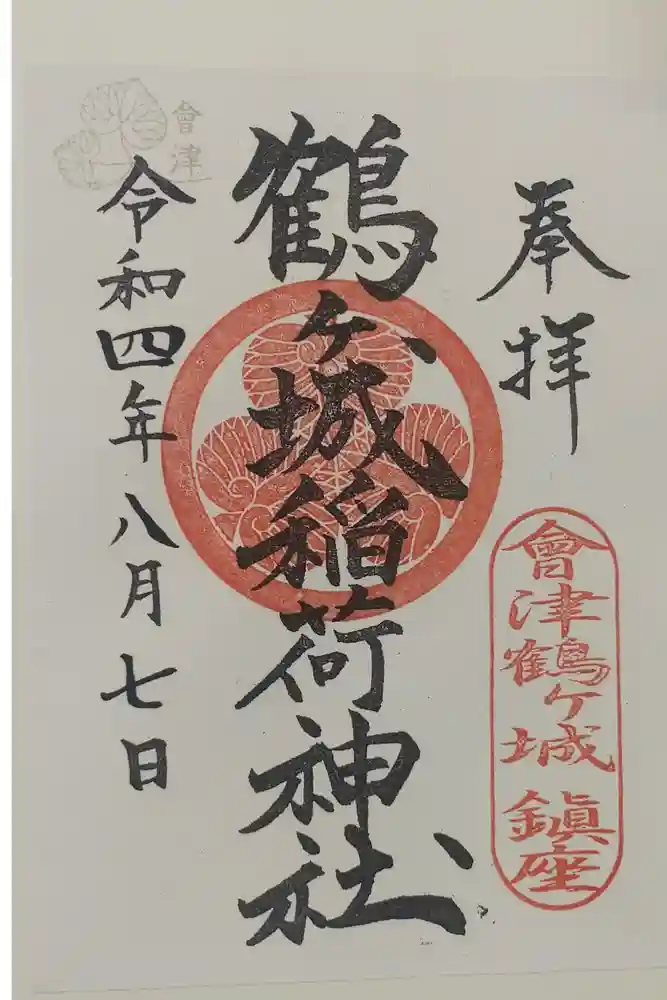 奉拝
會津鶴ヶ城 鎮座
鶴ヶ城稲荷神社
令和四年八月七日
會津